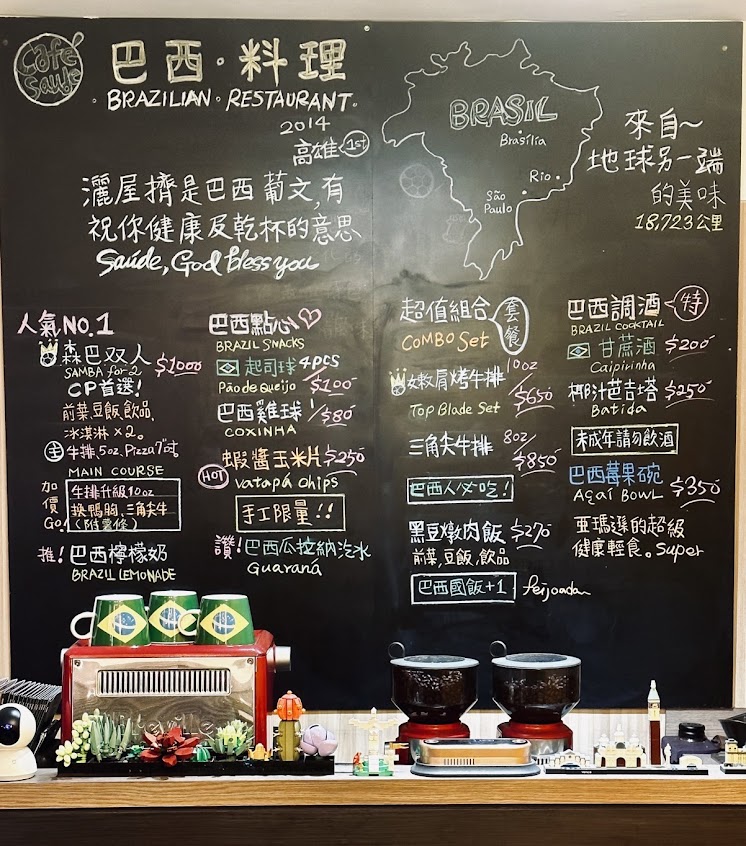 Café
Saúde
巴西·料理
BRAZILIAN·RESTAURANT
2014
高雄 1st
灑屋擠是巴西葡文,有
祝你健康及乾杯的意思
Saúde, God bless you
BRASIL
Brasília
Rio
São
Paulo
來自~
地球另一端
的美味
18,723公里
人氣NO.1
森巴双人 $1000
SAMBA for 2
CP首選!
前菜,豆飯,飲品,
冰淇淋×2。
主 牛排,5oz,Pizza 7吋
MAIN COURSE
加價Go!
牛排升級10oz
換鴨胸、三角尖牛
推! 巴西檸檬奶
BRAZIL LEMONADE
巴西點心
BRAZIL SNACKS
起司球 4pcs
Pão de Queijo /$100
巴西雞球 /$80
COXINHA
蝦醬玉米片 $250
HOT Vatapá Chips
手工限量!!
讚! 巴西瓜拉納汽水
Guaraná
超值組合 套餐
COMBO Set
嫩肩烤牛排 10oz
/$650
Top Blade Set
三角尖牛排 8oz
/$850
巴西人必吃!
黑豆燉肉飯 $270
前菜,豆飯,飲品
巴西國飯+1 feijoada
巴西調酒 特
BRAZIL COCKTAIL
甘蔗酒 $200
Caipirinha
椰汁芭吉塔 $250
Batida
未成年請勿飲酒
巴西莓果碗
Açaí BOWL $350
亞瑪遜的超級
健康輕食。Super